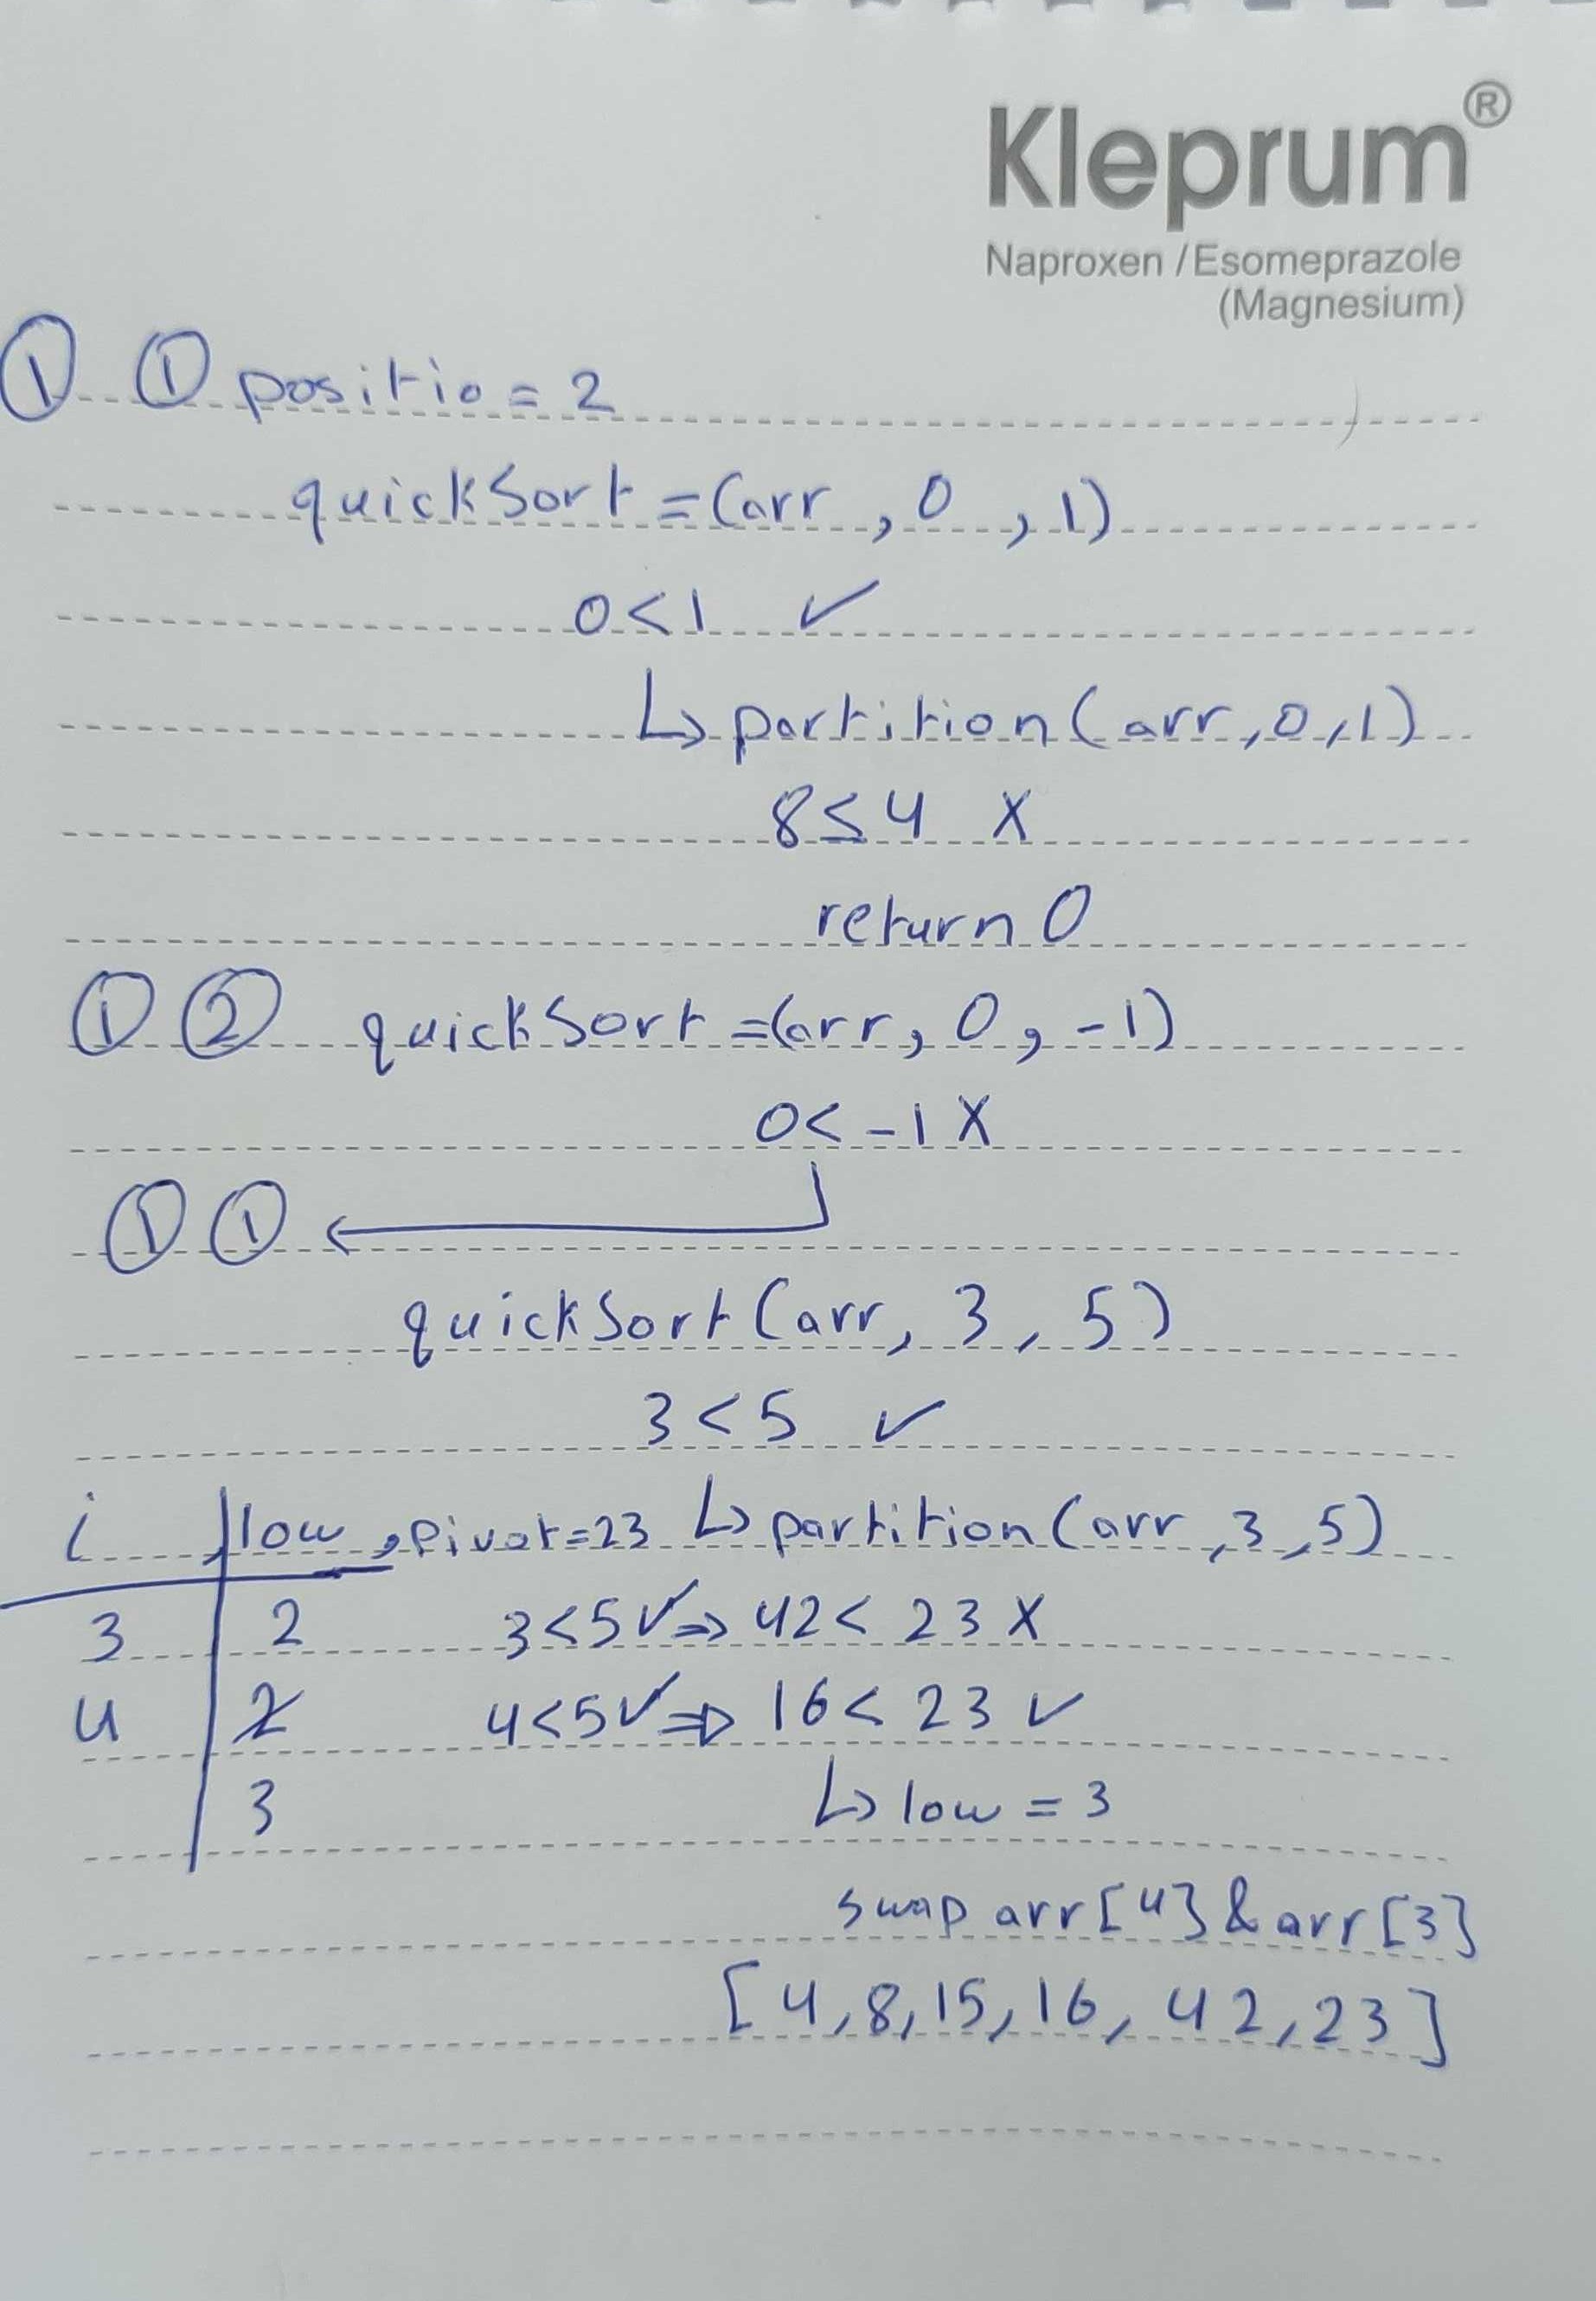 Kleprum®
Naproxen / Esomeprazole
(Magnesium)
① ① positio = 2
quickSort = (arr, 0, 1)
0 < 1 ✓
↳ partition (arr, 0, 1)
8 ≤ 4 X
return 0
① ② quickSort = (arr, 0, -1)
0 < -1 X
① ① ←
quickSort (arr, 3, 5)
3 < 5 ✓
i , low , pivot = 23 ↳ partition (arr, 3, 5)
3 2 3 < 5 ✓ ⇒ 42 < 23 X
4 2 4 < 5 ✓ ⇒ 16 < 23 ✓
3 ↳ low = 3
swap arr [4] & arr [3]
[4, 8, 15, 16, 42, 23]